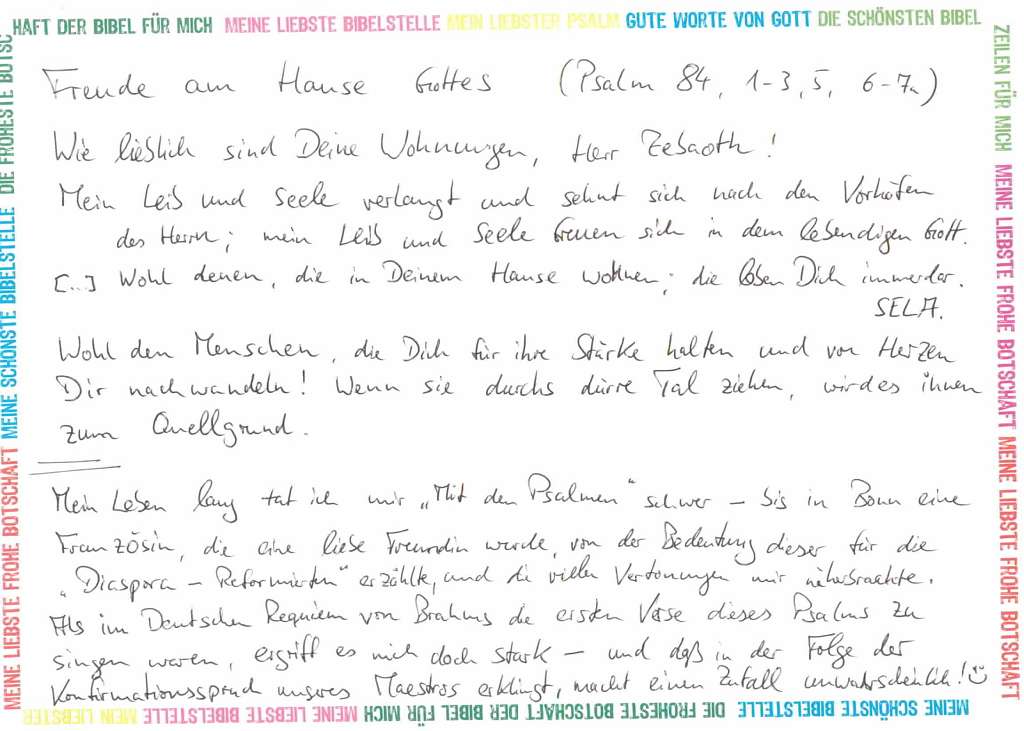 HAFT DER BIBEL FÜR MICH MEINE LIEBSTE BIBELSTELLE MEIN LIEBSTER PSALM GUTE WORTE VON GOTT DIE SCHÖNSTEN BIBEL
ZEILEN FÜR MICH MEINE LIEBSTE FROHE BOTSCHAFT MEINE LIEBSTE FROHE BOTSCHAFT
Freude am Hause Gottes (Psalm 84, 1-3, 5, 6-7a)
Wie lieblich sind Deine Wohnungen, Herr Zebaoth!
Mein Leib und Seele verlangt und sehnt sich nach den Vorhöfen
des Herrn; mein Leib und Seele freuen sich in dem lebendigen Gott.
[...] Wohl denen, die in Deinem Hause wohnen; die loben Dich immerdar.
SELA.
Wohl den Menschen, die Dich für ihre Stärke halten und von Herzen
Dir nachwandeln! Wenn sie durchs dürre Tal ziehen, wird es ihnen
zum Quellgrund.
Mein Leben lang tat ich mir „Mit den Psalmen" schwer – bis in Bonn eine
Französin, die eine liebe Freundin wurde, von der Bedeutung dieser für die
„Diaspora – Reformierten" erzählte, und die vielen Vertonungen mir näherbrachte.
Als im Deutschen Requiem von Brahms die ersten Verse dieses Psalms zu
singen waren, ergriff es mich doch stark – und daß in der Folge der
Konfirmationsspruch unseres Maestros erklingt, macht einen Zufall unwahrscheinlich!
MEINE SCHÖNSTE BIBELSTELLE DIE FROHESTE BOTSCHAFT DER BIBEL FÜR MICH MEINE LIEBSTE BIBELSTELLE MEIN LIEBSTER
MEINE LIEBSTE FROHE BOTSCHAFT MEINE SCHÖNSTE BIBELSTELLE DIE FROHESTE BOTSC